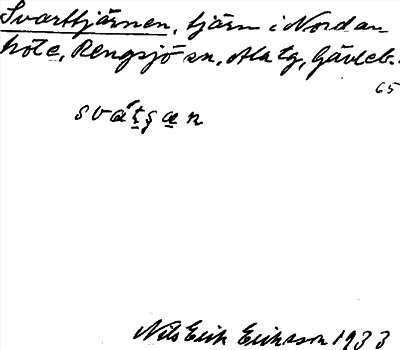 Svarttjärnen, tjärn i Nordan
höle, Rengsjö sn, Ala tg, Gävleb.
65
svátşa̲n
Nils Erik Eriksson 1933